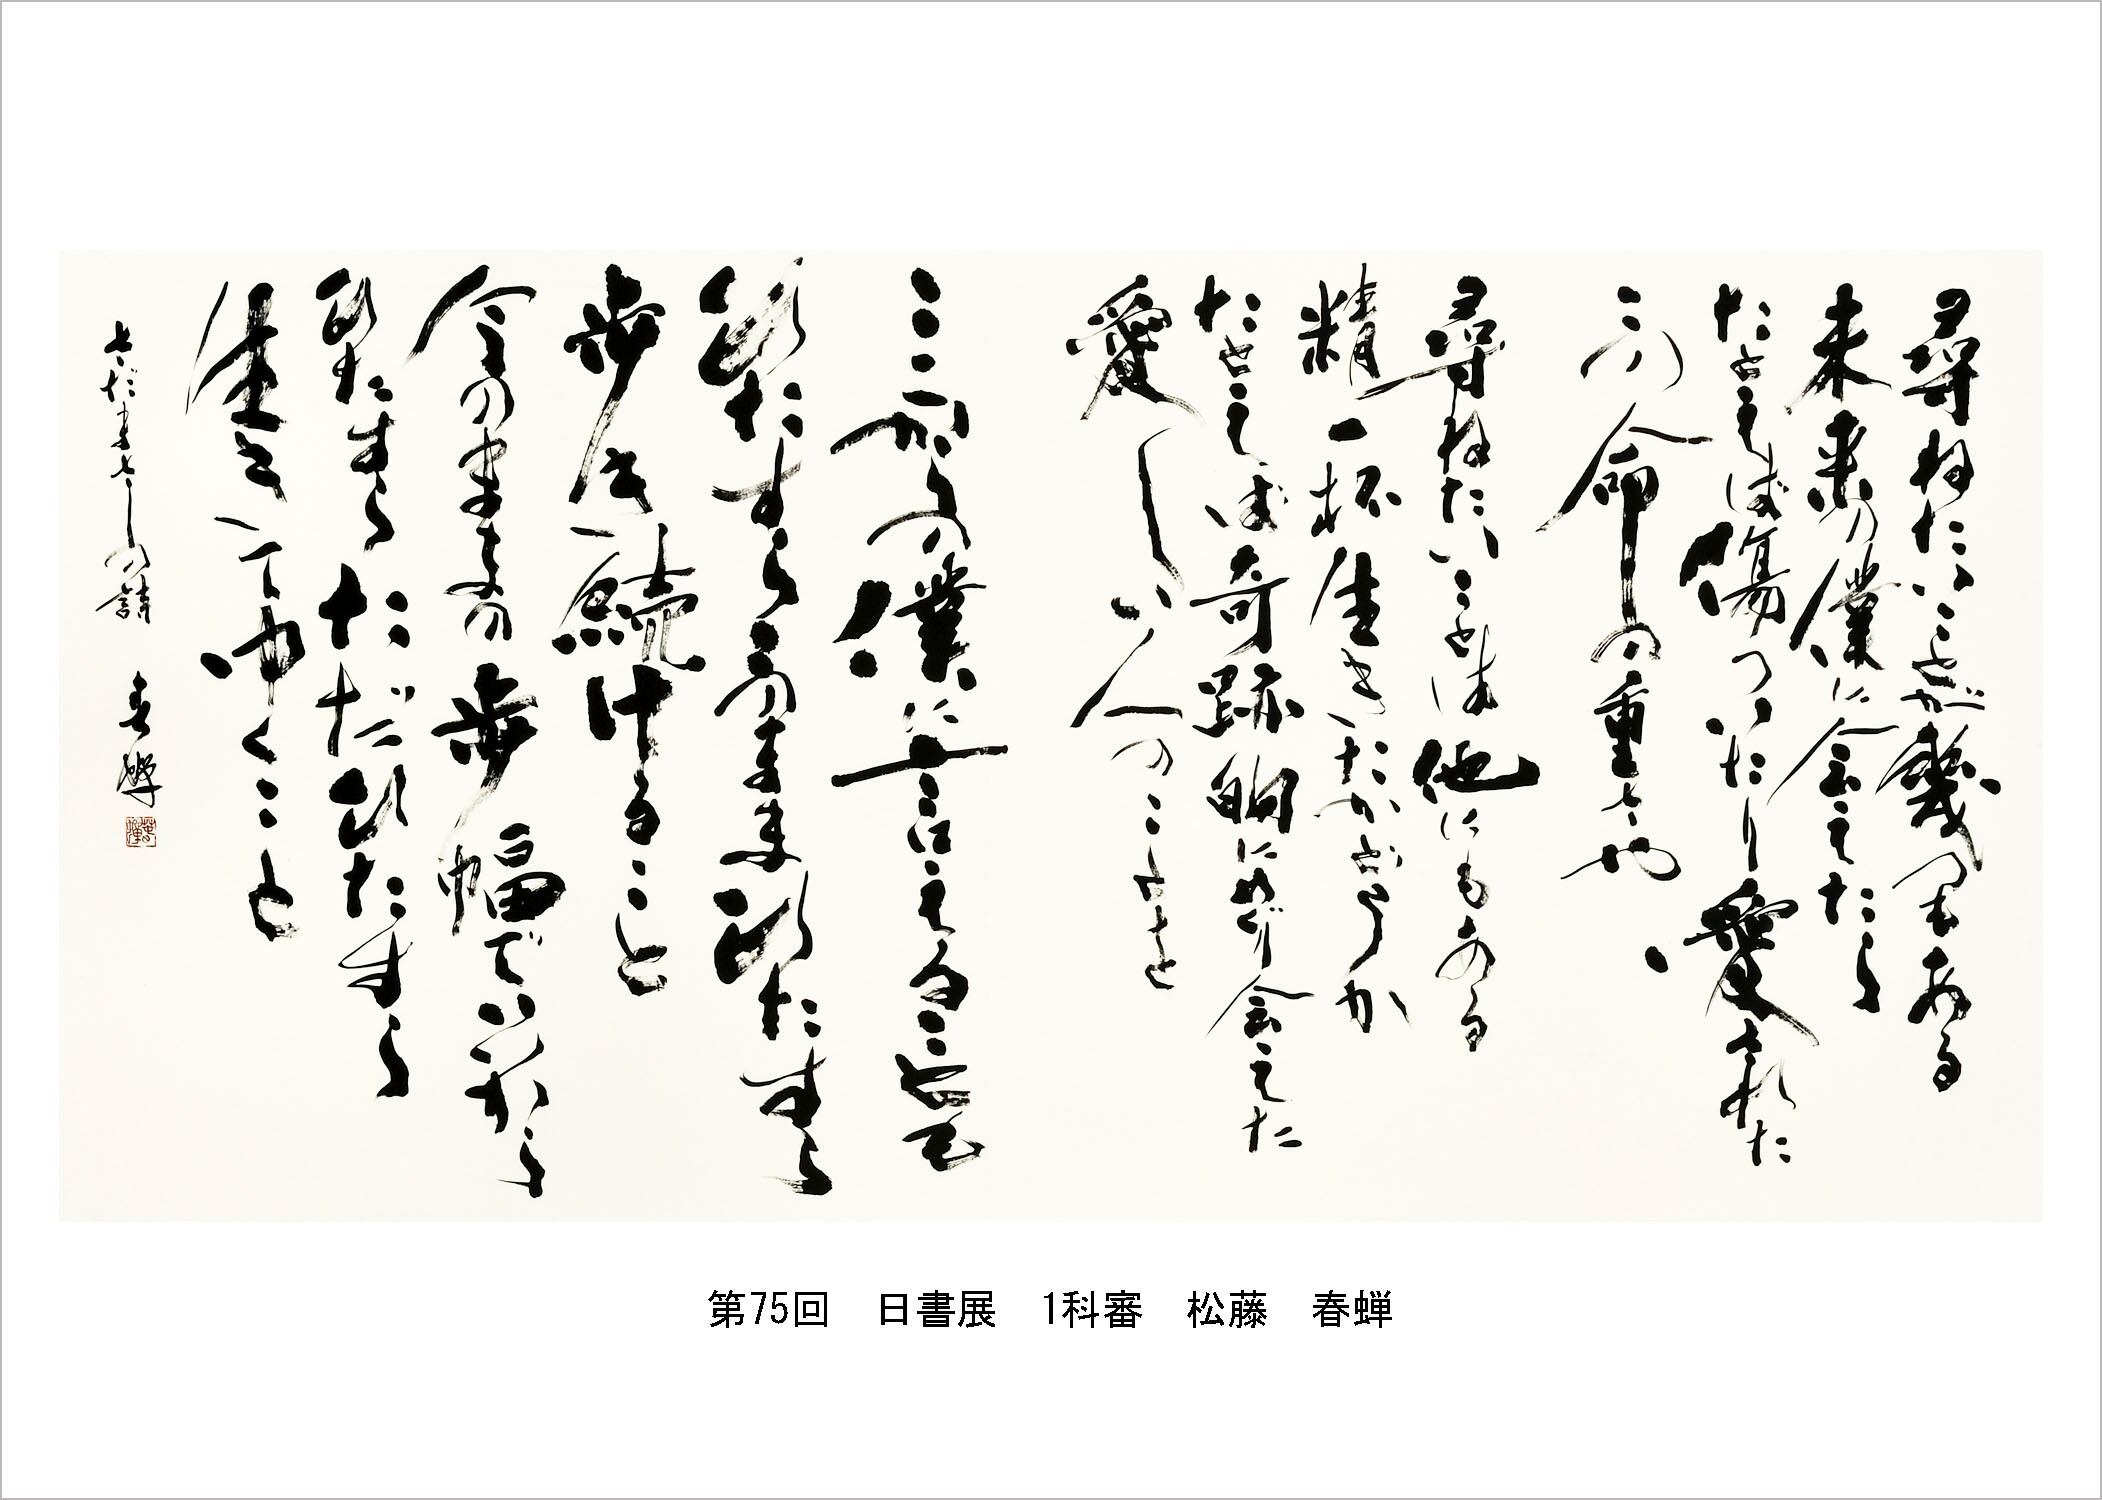 尋ねたいことが幾つもある
未来の僕に会えたら
たとえば傷ついたり愛された
この命の重さや
尋ねたいことは他にもある
精一杯生きたかどうか
たとえば奇跡的にめぐり会えた
愛しい人のことを
ここからの僕に言えることも
ひたすらこのままひたすら
歩き続けること
今のままの歩幅でいいから
ひたすらただひたすら
生きてゆくこと
さだまさしの詩　春蝉
第75回　日書展　1科審　松藤　春蝉